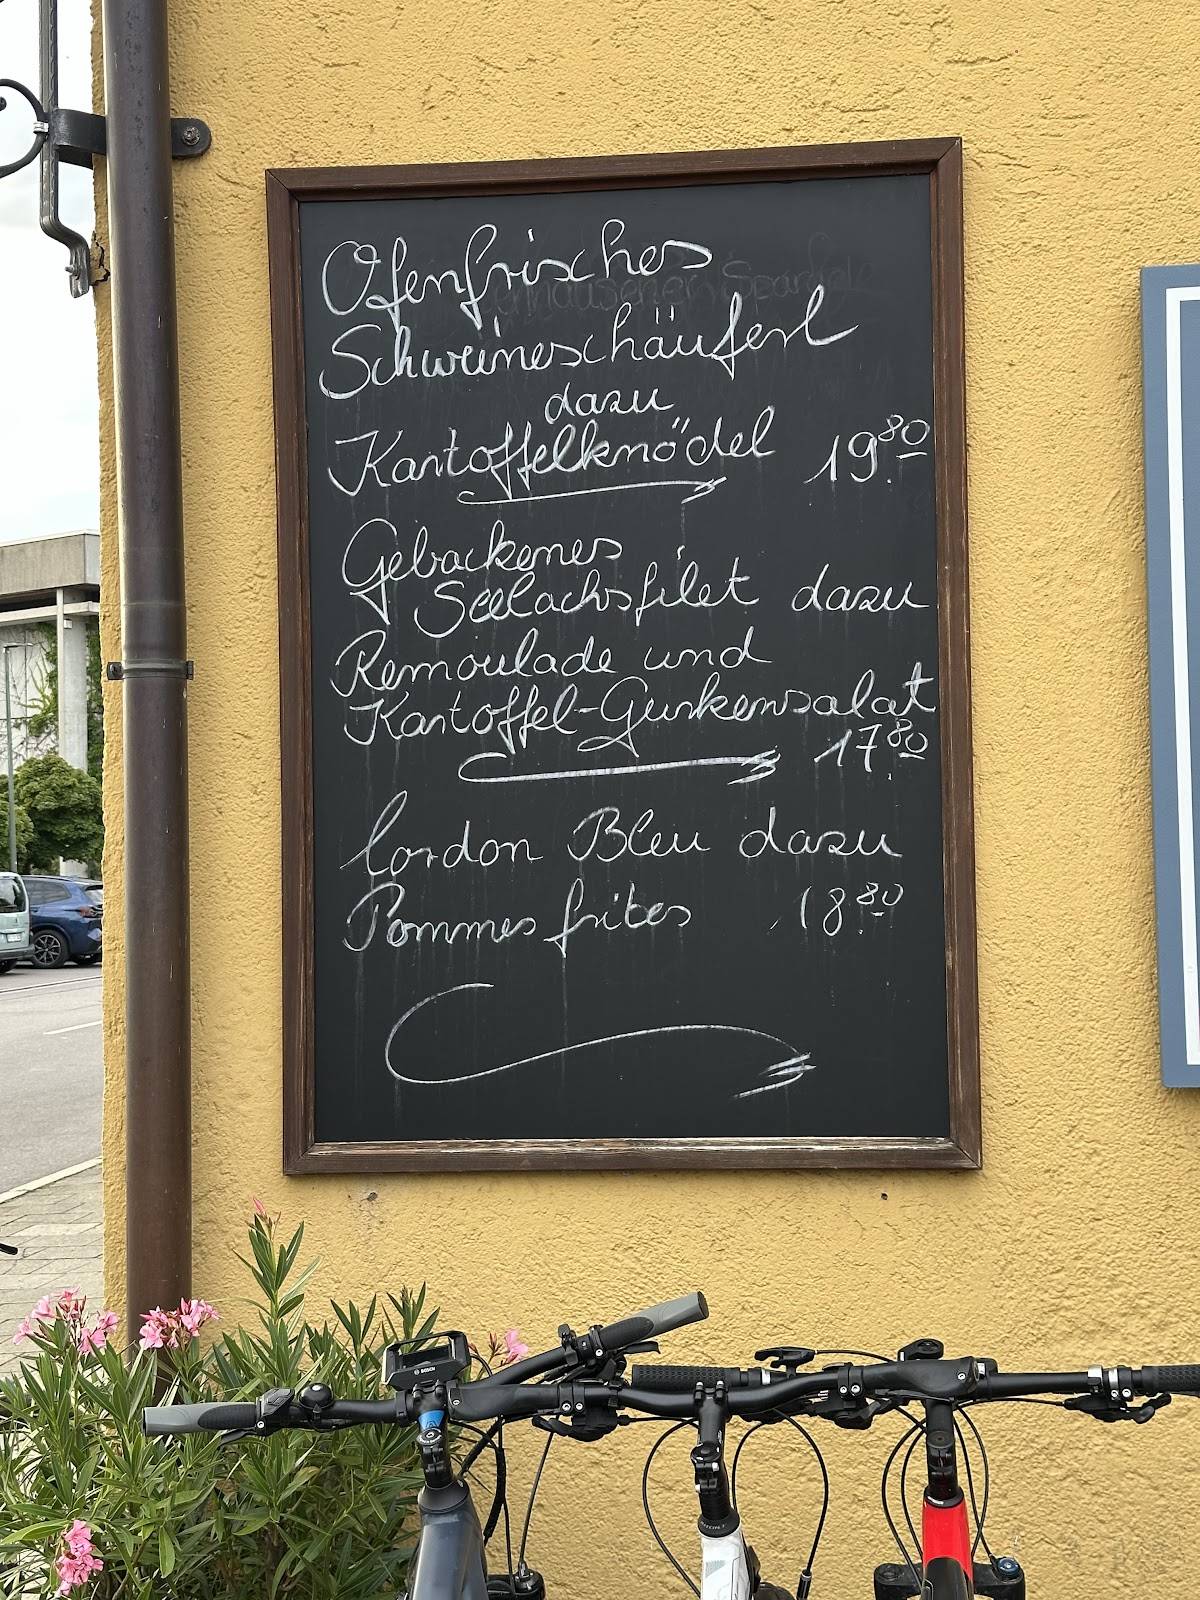 Ofenfrisches
Schweineschäuferl
dazu
Kartoffelknödel 19.80
Gebackenes
Seelachsfilet dazu
Remoulade und
Kartoffel-Gurkensalat
17.80
Cordon Bleu dazu
Pommes frites 18.80
BOSCH